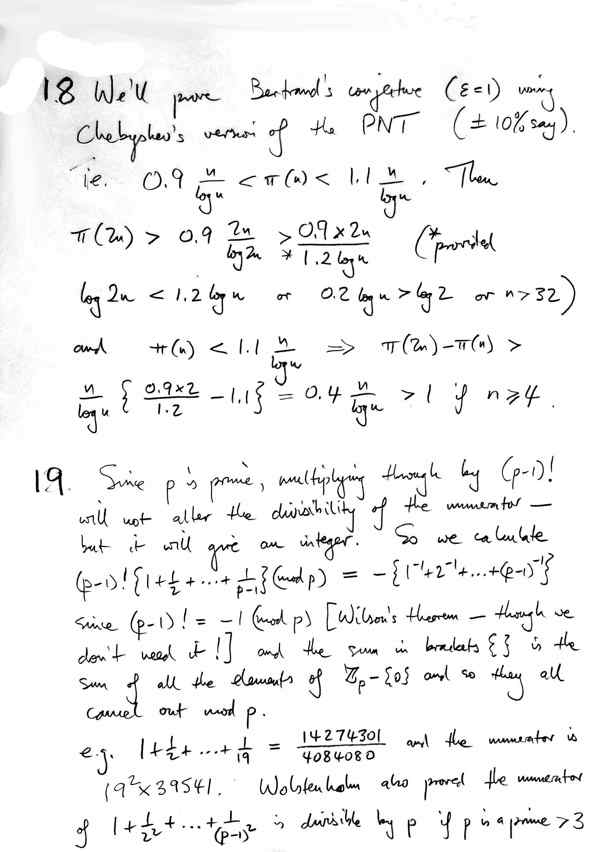 18 We'll prove Bertrand's conjecture (ε=1) using
Chebyshev's version of the PNT (±10% say).
ie. 0.9 n/log n < π(n) < 1.1 n/log n . Then
π(2n) > 0.9 2n/log 2n >* 0.9×2n/1.2 log n (*provided
log 2n < 1.2 log n or 0.2 log n > log 2 or n > 32)
and π(n) < 1.1 n/log n ⇒ π(2n) − π(n) >
n/log n { 0.9×2/1.2 − 1.1 } = 0.4 n/log n > 1 if n ≥ 4 .
19. Since p is prime, multiplying through by (p-1)!
will not alter the divisibility of the numerator —
but it will give an integer. So we calculate
(p-1)! {1 + 1/2 + ... + 1/p-1} (mod p) = −{1⁻¹+2⁻¹+...+(p-1)⁻¹}
since (p-1)! = −1 (mod p) [Wilson's theorem — though we
don't need it!] and the sum in brackets { } is the
sum of all the elements of ℤp − {0} and so they all
cancel out mod p.
e.g. 1 + 1/2 + ... + 1/19 = 14274301/4084080 and the numerator is
19² × 39541. Wolstenholm also proved the numerator
of 1 + 1/2² + ... + 1/(p-1)² is divisible by p if p is a prime > 3